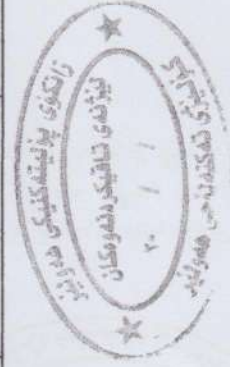 زانکۆی پۆلیتەکنیکی هەولێر
لیژنەی تاقیکردنەوەکان
٢٠ / /
کۆلێژی تەکنەلۆجی هەولێر